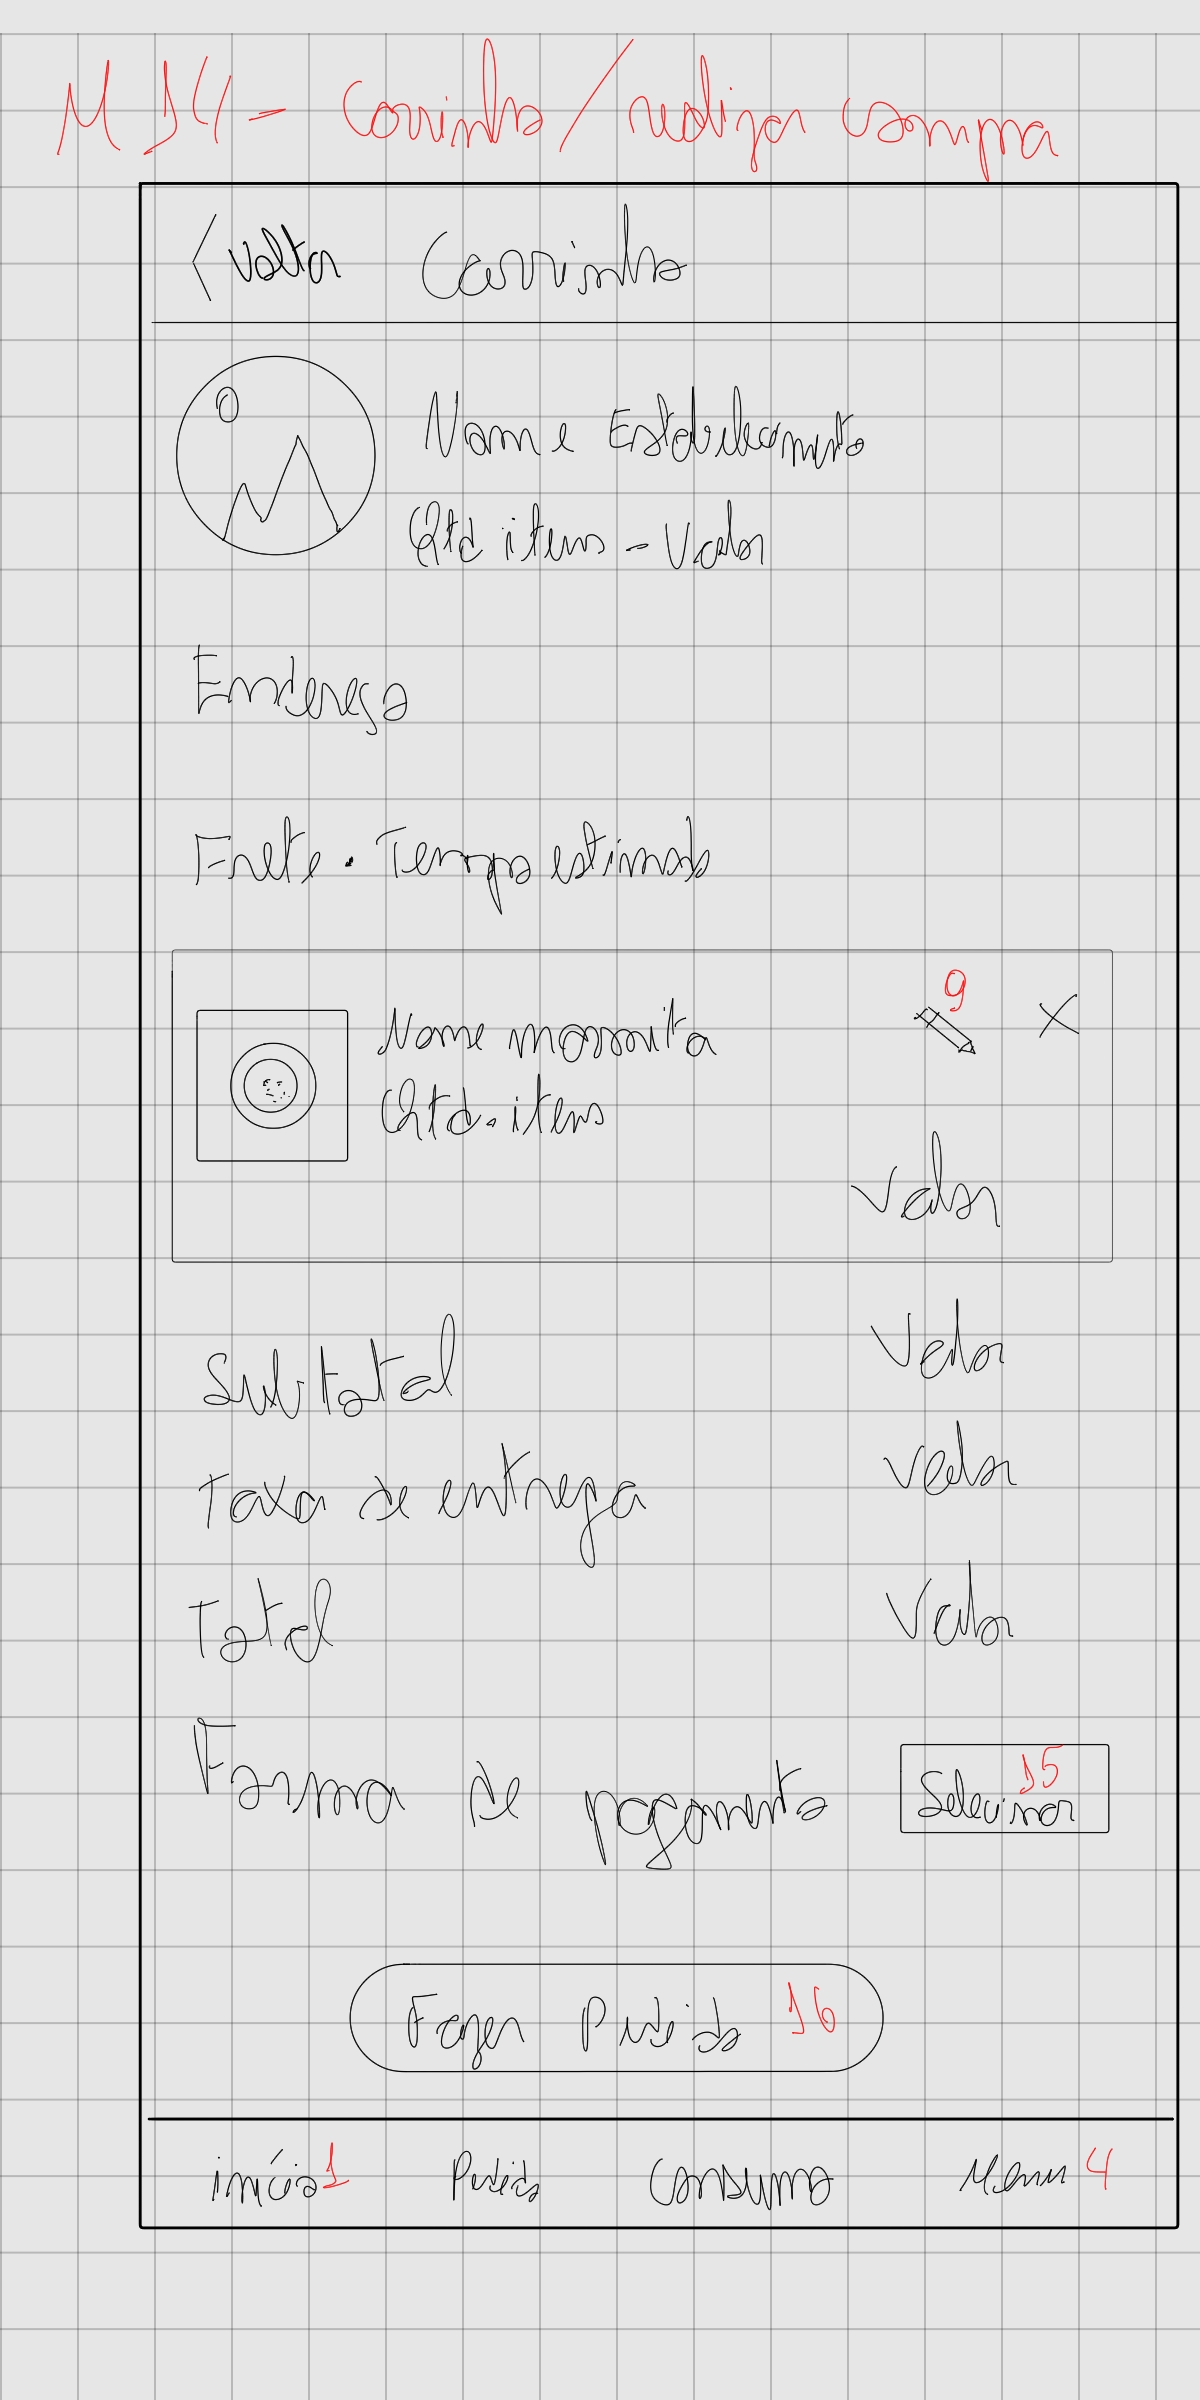 M 14 - Carrinho/realizar compra
< Voltar Carrinho
Nome Estabelecimento
Qtd itens - Valor
Endereço
Frete . Tempo estimado
9 X
Nome marmita
Qtd. itens
Valor
Subtotal Valor
Taxa de entrega Valor
Total Valor
Forma de pagamento Selecionar 15
Fazer Pedido 16
início 1 Pedido Consumo Menu 4